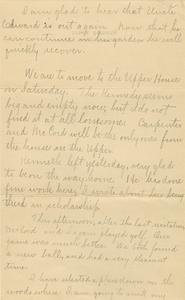 I am glad to hear that Uncle
Edward is out again. Now that he
can continue in his garden he will
quickly recover.
We are to move to the Upper House
on Saturday. The Kennedy seems
big and empty now, but I do not
find it at all lonesome. Carpenter
and McCord will be the only ones from
the house in the Upper.
Kimmell left yesterday, very glad
to be on the way home. He has done
fine work here; I wrote about his being
third in scholarship.
This afternoon, after the last recitation,
McCord and I played golf. Our
game was much better. We both found
a new ball, and had a very pleasant
time.
I have selected a place down in the
woods where I am going to spend my